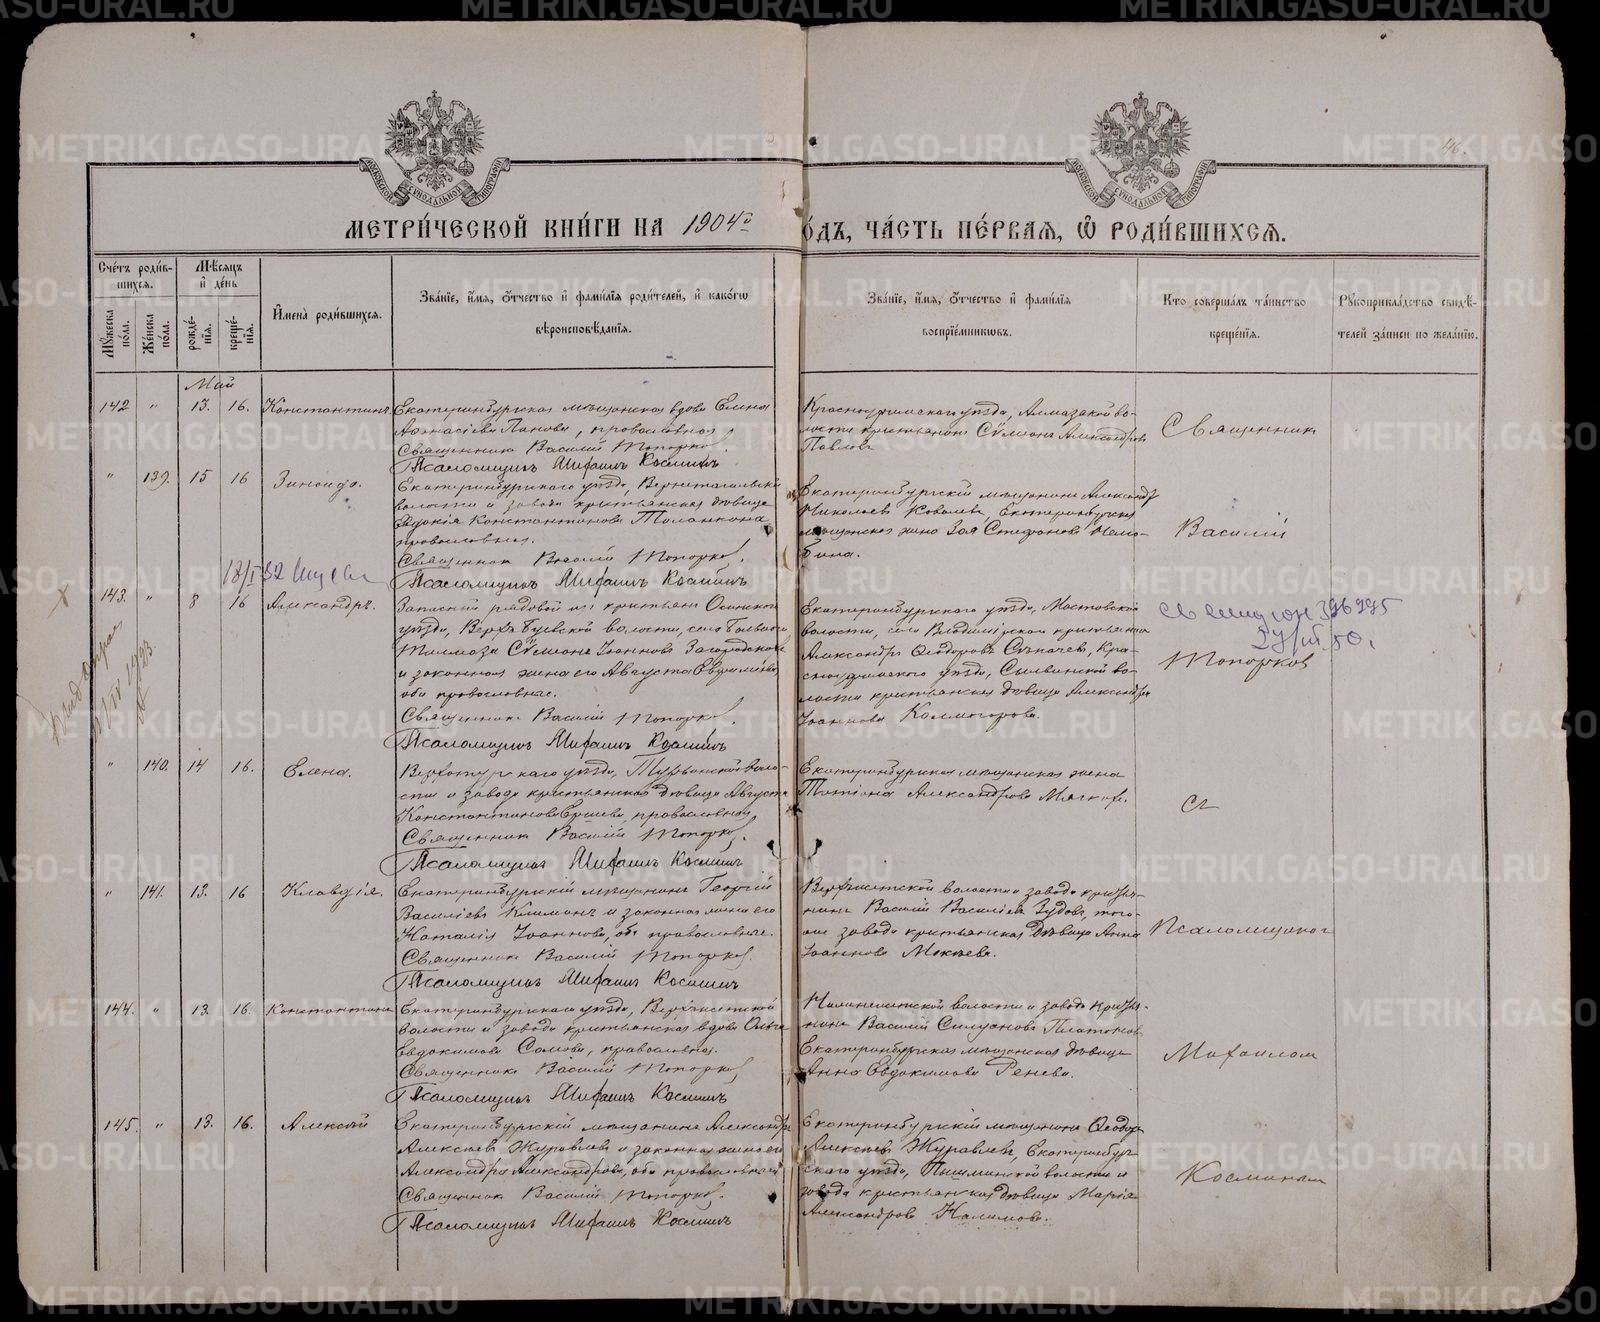 METRIKI.GASO-URAL.RU
46.
МОСКОВСКОЙ СУНОДАЛЬНОЙ ТИПОГРАФІИ
МОСКОВСКОЙ СУНОДАЛЬНОЙ ТИПОГРАФІИ
МЕТРИ́ЧЕСКОЙ КНИ́ГИ НА 1904й
О́ДЪ, ЧА́СТЬ ПЕ́РВАЯ, Ѡ҆ РОДИ́ВШИХСЯ.
Сче́тъ роди́вшихся.
Мѹ́жеска по́ла.
Же́нска по́ла.
Мѣ́сяцъ и҆ де́нь
рожде́нїя.
креще́нїя.
И҆мена̀ роди́вшихся.
Зва́нїе, и҆́мя, ѻ҆́тчество и҆ фами́лїя роди́телей, и҆ како́гѡ
вѣроисповѣ́данїя.
Зва́нїе, и҆́мя, ѻ҆́тчество и҆ фами́лїя
воспрїе́мникѡвъ.
Кто̀ соверша́лъ та́инство
креще́нїя.
Рѹкоприкла́дство свидѣ́телей за́писи по жела́нїю.
Май
142 " 13. 16. Константинъ.
Екатеринбургская мѣщанская вдова Елена
Афанасіева Панова, православная
Священникъ Василій Топорков.
Псаломщикъ Михаилъ Косминъ
Красноуфимскаго уѣзда,
волости крестьянинъ Сѷмеонъ Александровъ
Павловъ
Священник
" 139. 15 16 Зинаида.
Екатеринбургскаго уѣзда, Верхнетагильской
волости и завода крестьянская дѣвица
Евдокія Константинова
православная.
Священникъ Василій Топорков.
Псаломщикъ Михаилъ Косминъ
Екатеринбургскій мѣщанинъ Александръ
Николаевъ Ковалевъ, Екатеринбургская
мѣщанская жена Зоя Стефанова
Василій
143. " 8 16 Александръ.
Запасный рядовой изъ крестьянъ Осинскаго
уѣзда, Верхъ-Буевской волости, села
Сѷмеонъ Іоанновъ Загородсков
и законная жена его Августа Евфиміева,
оба православные.
Священникъ Василій Топорков.
Псаломщикъ Михаилъ Косминъ
Екатеринбургскаго уѣзда, Мостовской
волости, села Владимірскаго крестьянинъ
Александръ Ѳеодоровъ
уѣзда, Сылвинской волости крестьянская дѣвица Александра
Іоаннова Колмогорова.
396995
Топорков
" 140. 14 16. Елена.
Верхотурскаго уѣзда, Туринской волости и завода крестьянская дѣвица Августа
Константинова Ершева, православная
Священникъ Василій Топорков.
Псаломщикъ Михаилъ Косминъ
Екатеринбургская мѣщанская жена
Татіана Александрова
съ
" 141. 13. 16 Клавдія.
Екатеринбургскій мѣщанинъ Георгій
Василіевъ и законная жена его
Наталія Іоаннова, оба православные.
Священникъ Василій Топорков.
Псаломщикъ Михаилъ Косминъ
Верхъисетской волости и завода крестьянинъ Василій Василіевъ Зудовъ, того-
же завода крестьянская дѣвица Анна
Іоаннова Мокѣева.
Псаломщиком
144. " 13. 16. Константинъ
Екатеринбургскаго уѣзда, Верхъисетской
волости и завода крестьянская вдова Ольга
Евдокимова Сомова, православная.
Священникъ Василій Топорков
Псаломщикъ Михаилъ Косминъ
волости и завода крестьянинъ Василій Силуановъ Платоновъ
Екатеринбургская мѣщанская дѣвица
Анна Евдокимова Ренева.
Михаилом
145. " 13. 16. Алексѣй
Екатеринбургскій мѣщанинъ Александръ
Алексѣевъ Журавлевъ и законная жена его
Александра Александрова, оба православные
Священникъ Василій Топорков.
Псаломщикъ Михаилъ Косминъ
Екатеринбургскій мѣщанинъ Ѳеодоръ
Алексѣевъ Журавлевъ, Екатеринбургскаго уѣзда, Пышминской волости и
завода крестьянская дѣвица Марія
Александрова Налимова.
Косминым